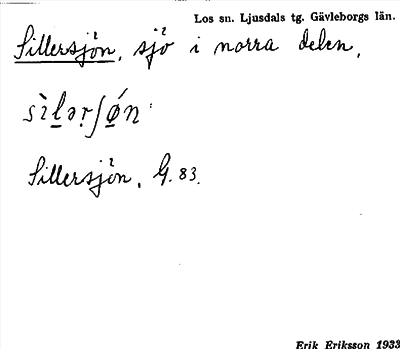 Los sn. Ljusdals tg. Gävleborgs län.
Sillersjön, sjö i norra delen.
sìlərʃǿn
Sillersjön. G. 83.
Erik Eriksson 1933